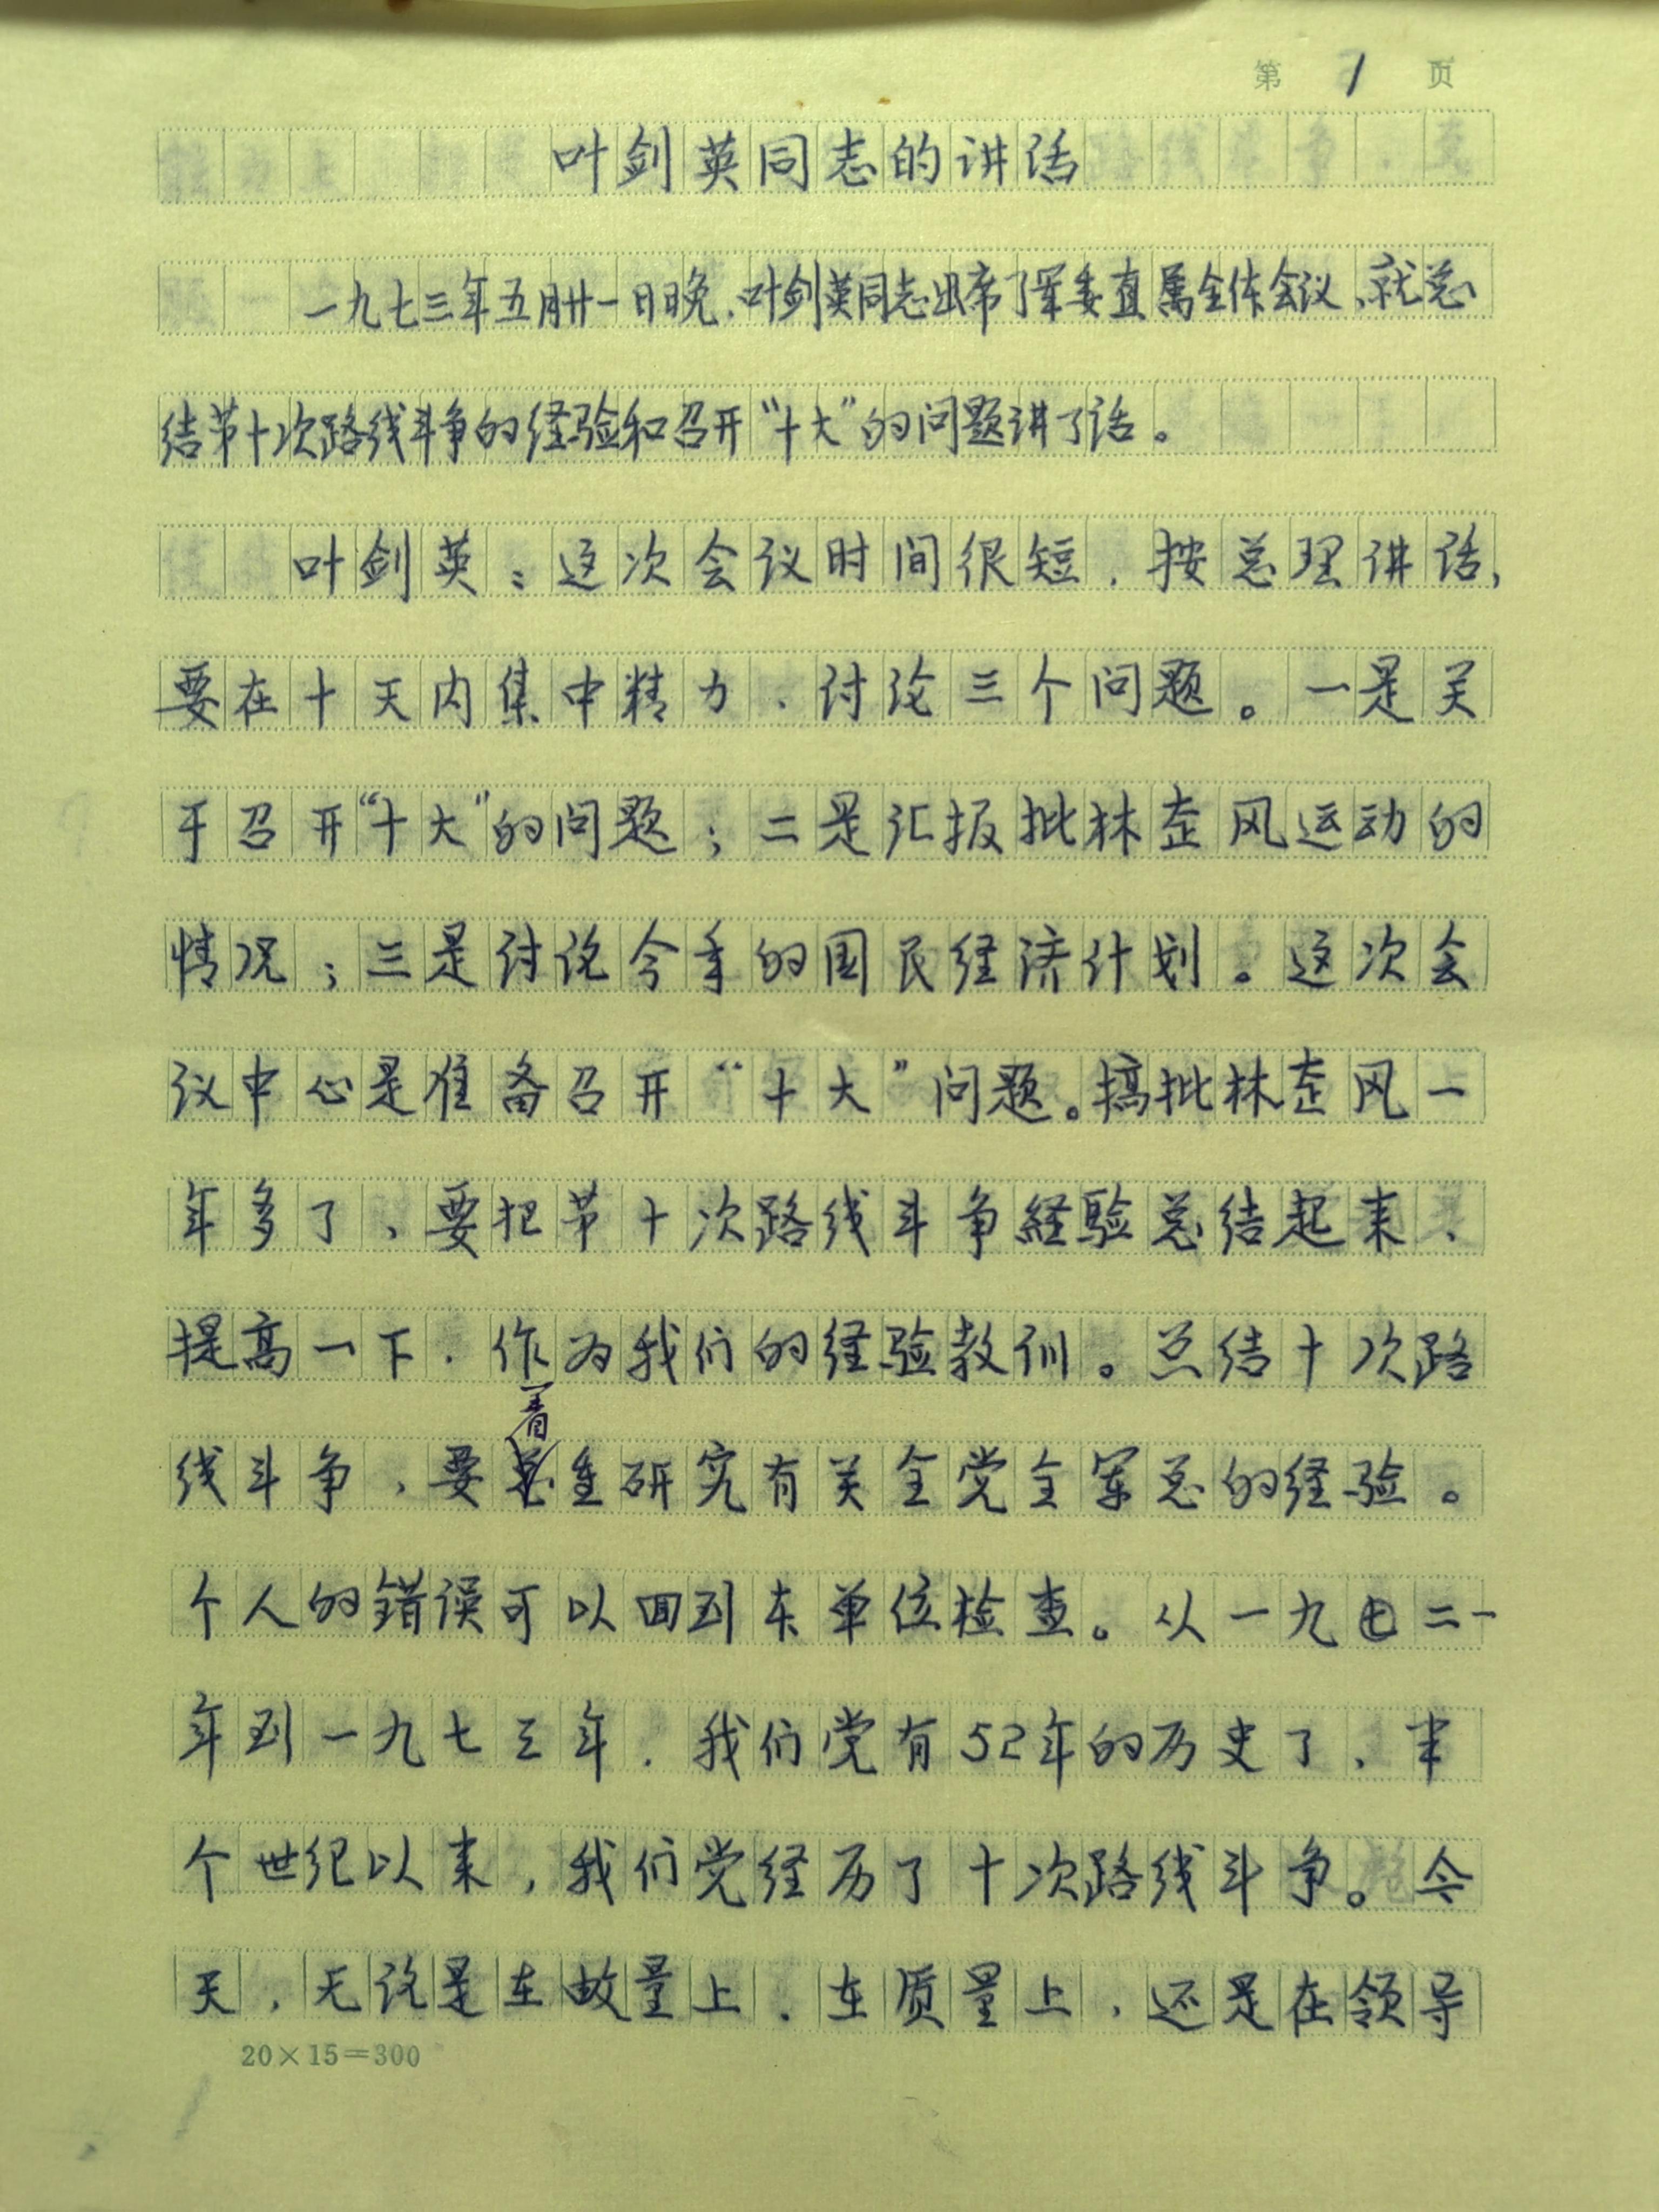 第 1 页
叶剑英同志的讲话
一九七三年五月廿一日晚，叶剑英同志出席了军委直属全体会议，就总
结第十次路线斗争的经验和召开“十大”的问题讲了话。
叶剑英：这次会议时间很短，按总理讲话，
要在十天内集中精力，讨论三个问题。一是关
于召开“十大”的问题；二是汇报批林整风运动的
情况；三是讨论今年的国民经济计划。这次会
议中心是准备召开“十大”问题。搞批林整风一
年多了，要把第十次路线斗争经验总结起来，
提高一下，作为我们的经验教训。总结十次路
线斗争，要着重研究有关全党全军总的经验。
个人的错误可以回到本单位检查。从一九二一
年到一九七三年，我们党有52年的历史了，半
个世纪以来，我们党经历了十次路线斗争。今
天，无论是在数量上，在质量上，还是在领导
20×15=300